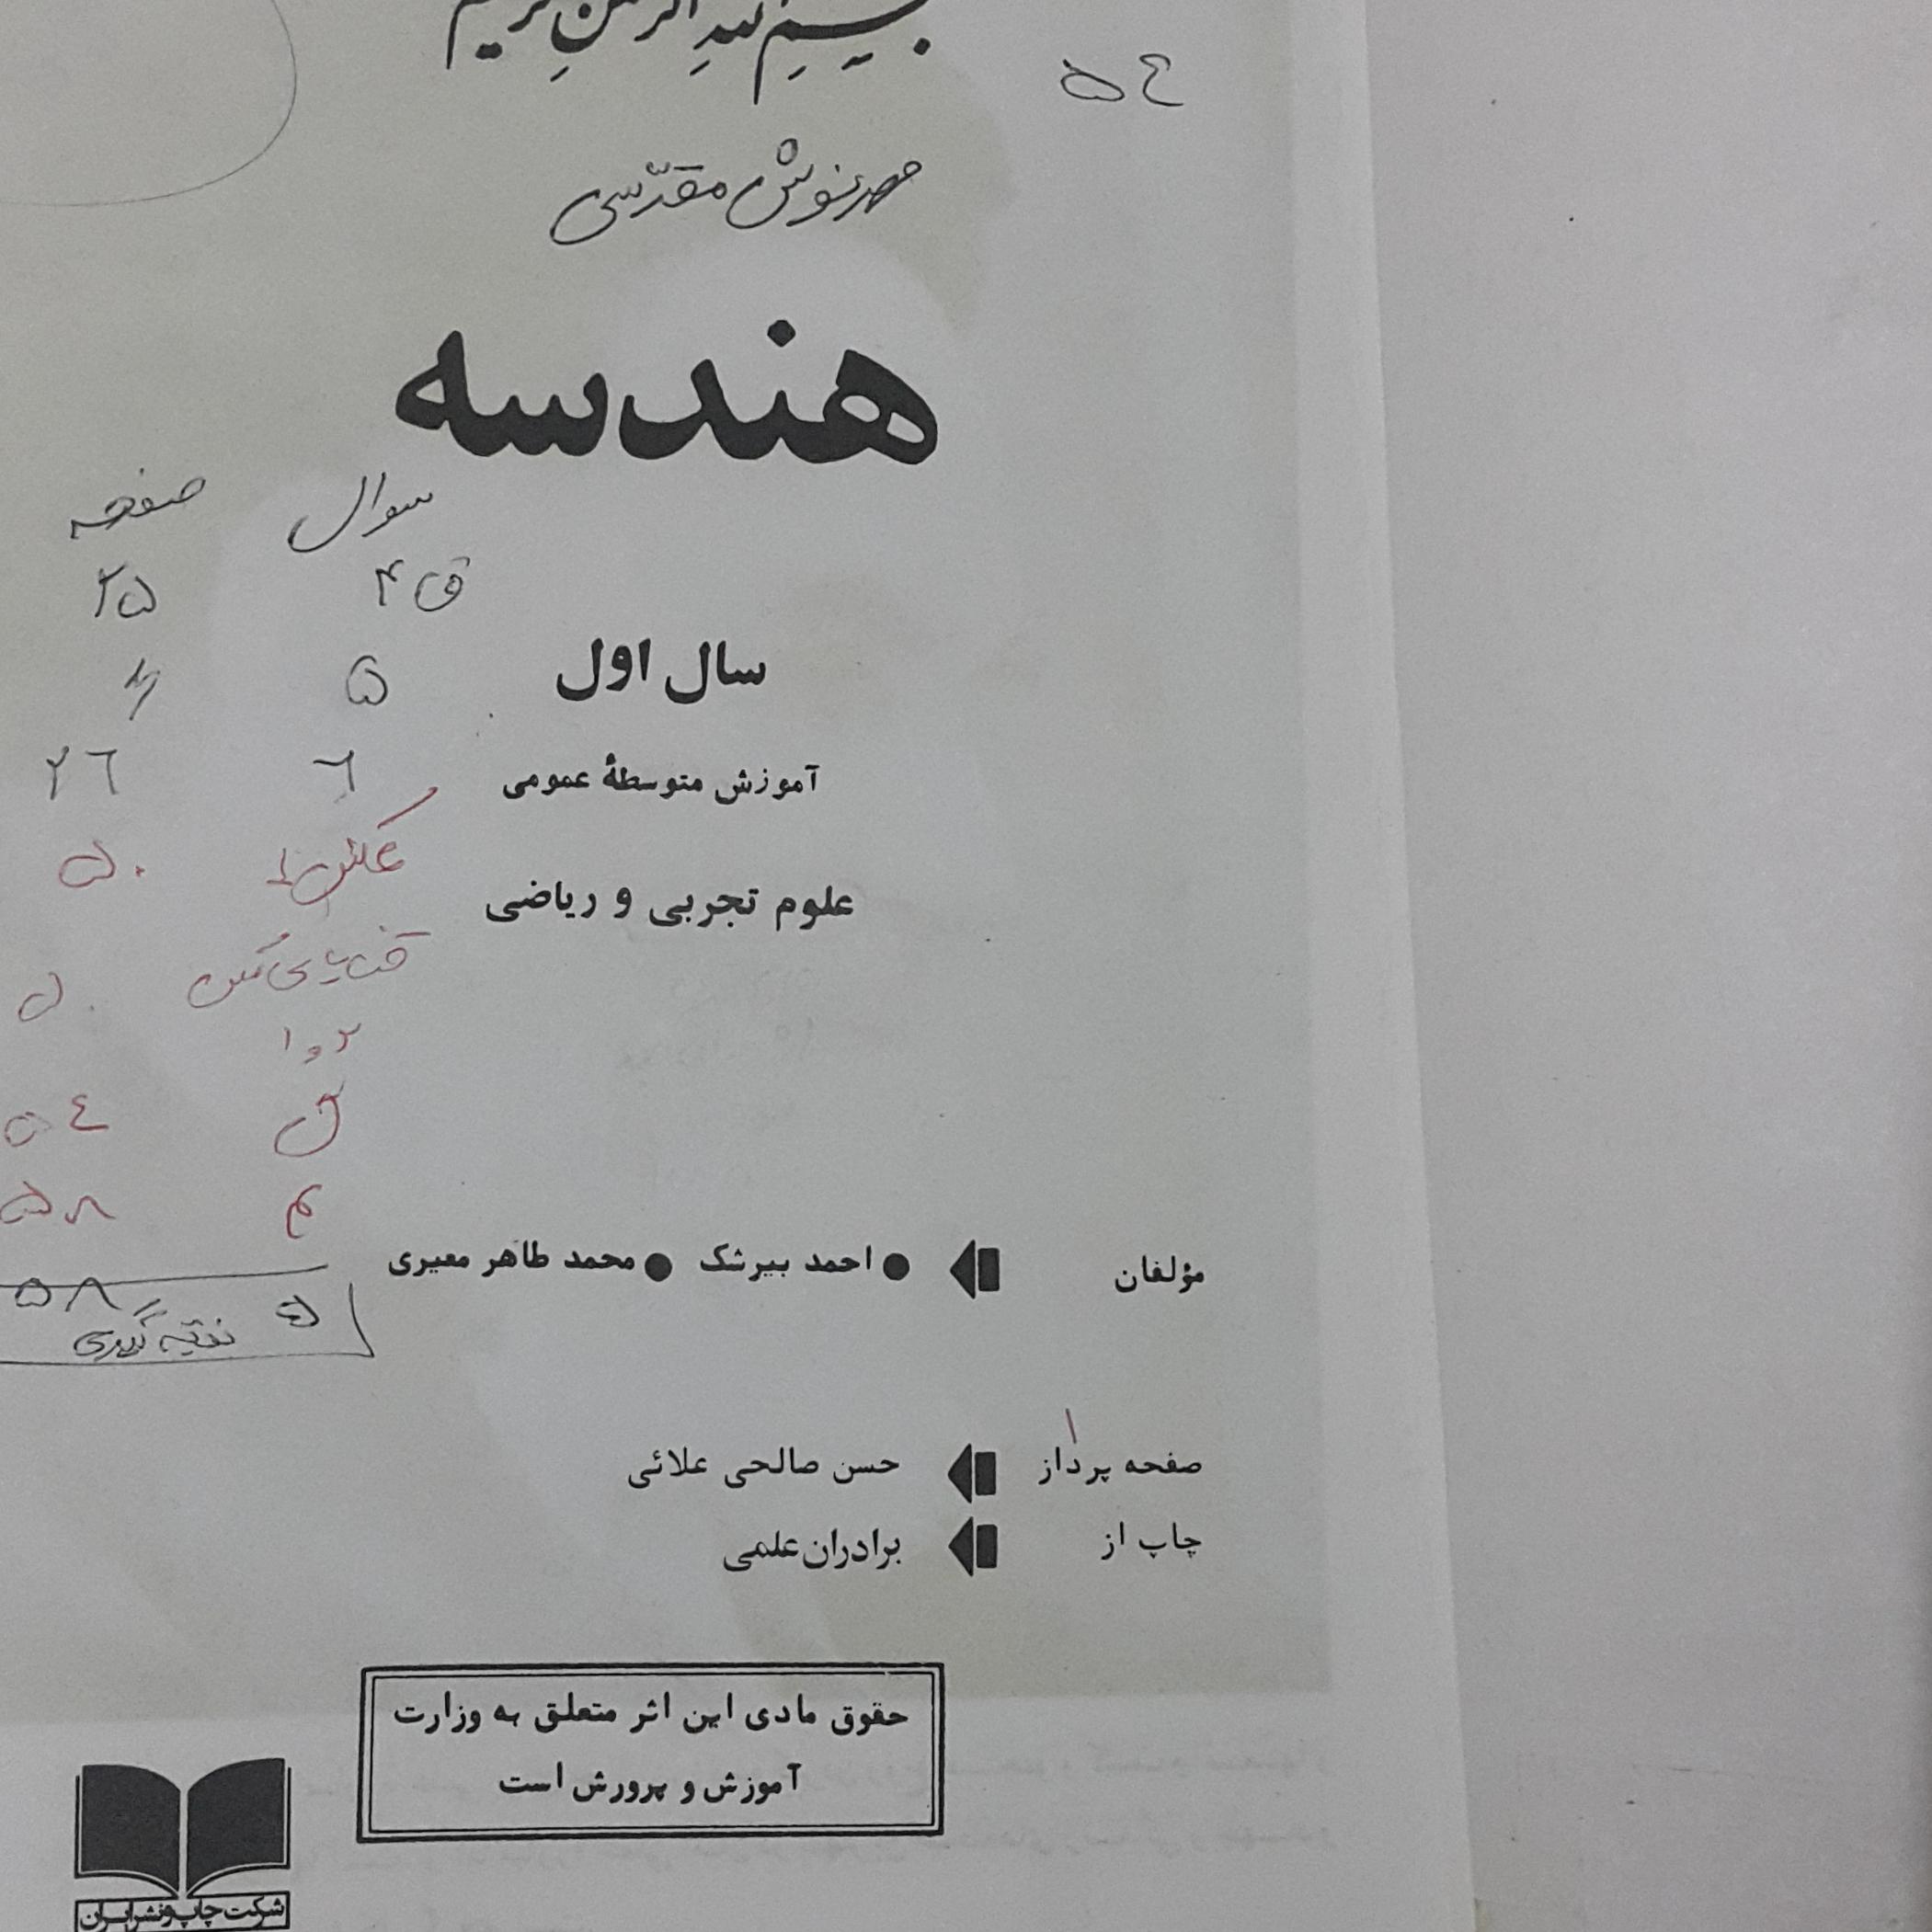 بسم الله الرحمن الرحیم
۵۴
مهرنوش مقدّسی
هندسه
سوال صفحه
ق ۴ ۲۵
۵ 〃
۶ ۲۶
سال اول
آموزش متوسطهٔ عمومی
۵۰
علوم تجربی و ریاضی
۵۰
۲ و ۱
ق ۵۴
م ۵۸
مؤلفان احمد بیرشک ● محمد طاهر معیری ●
۵ ۵۸
نتیجه گیری
صفحه پرداز حسن صالحی علائی
چاپ از برادران علمی
حقوق مادی این اثر متعلق به وزارت
آموزش و پرورش است
شرکت چاپ و نشر ایران